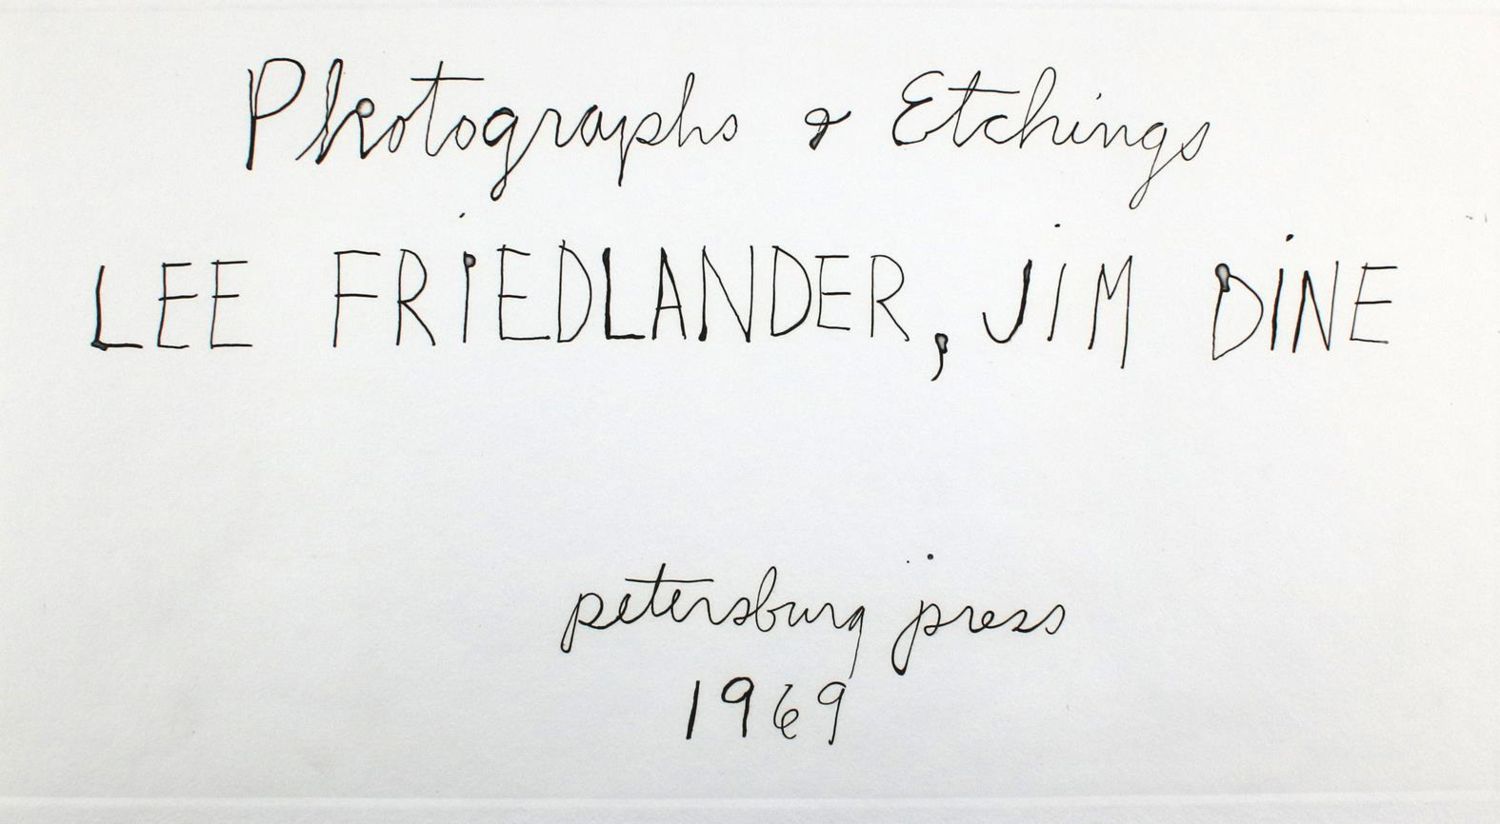 Photographs & Etchings
LEE FRiEDLANDER, JiM DiNE
petersburg press
1969